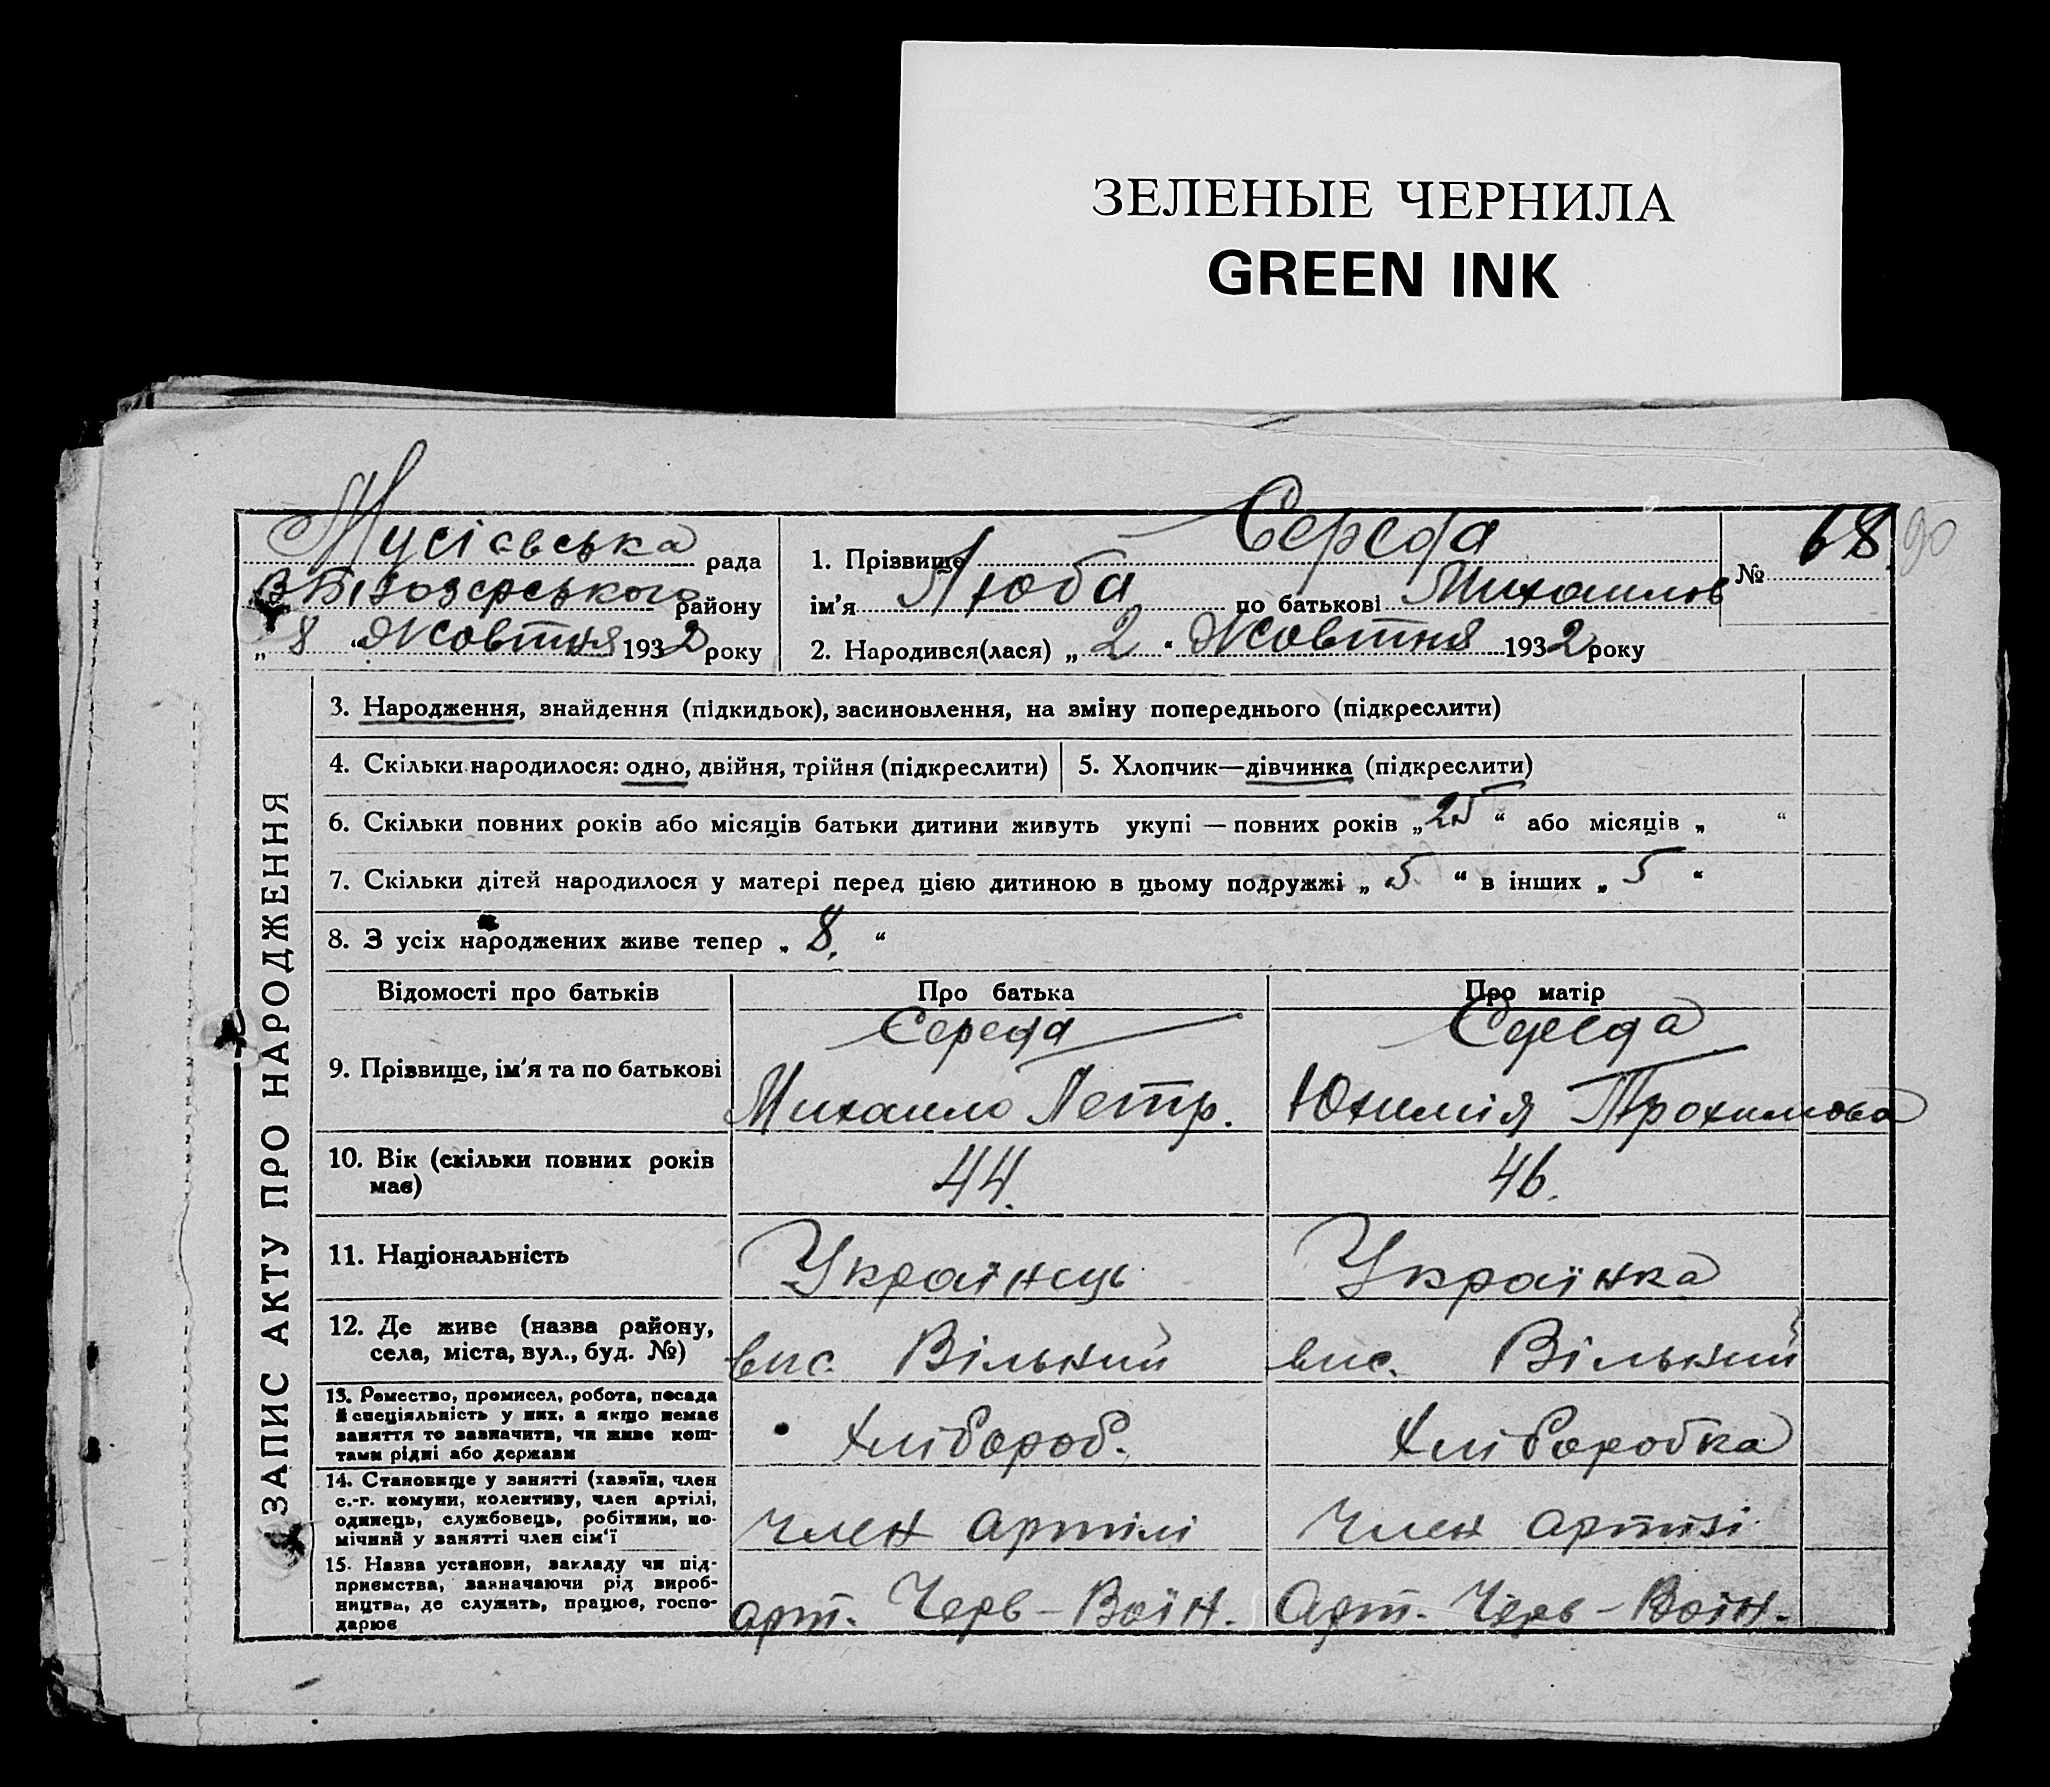 ЗЕЛЕНЫЕ ЧЕРНИЛА
GREEN INK
Мусієвська рада
В Бігозерського району
„ 8 “ Жовтня 1932 року
1. Прізвище Середа
ім'я Люба по батькові Михаилов
2. Народився(лася) „ 2 “ Жовтня 1932 року
№ 68 90
ЗАПИС АКТУ ПРО НАРОДЖЕННЯ
3. Народження, знайдення (підкидьок), засиновлення, на зміну попереднього (підкреслити)
4. Скільки народилося: одно, двійня, трійня (підкреслити)
5. Хлопчик—дівчинка (підкреслити)
6. Скільки повних років або місяців батьки дитини живуть укупі — повних років „ 25 “ або місяців „ “
7. Скільки дітей народилося у матері перед цією дитиною в цьому подружжі „ 5 “ в інших „ 5 “
8. З усіх народжених живе тепер „ 8. “
Відомості про батьків
Про батька
Про матір
9. Прізвище, ім'я та по батькові
Середа
Михаило Петр.
Середа
Юхимія Трохимова
10. Вік (скільки повних років
має)
44.
46.
11. Національність
Українець
Українка
12. Де живе (назва району,
села, міста, вул., буд. №)
вис. Вільний
вис. Вільний
13. Ремество, промисел, робота, посада
й спеціяльність у них, а якщо немає
заняття то зазначити, чи живе кош-
тами рідні або держави
Хлібороб.
Хліборобка
14. Становище у занятті (хазяїн, член
с.-г. комуни, колективу, член артілі,
одинець, службовець, робітник, по-
мічний у занятті член сім'ї
Член артілі
Член артілі
15. Назва установи, закладу чи під-
приємства, зазначаючи рід вироб-
ництва, де служить, працює, госпо-
дарює
арт. Черв-Воїн.
Арт. Черв-Воїн.